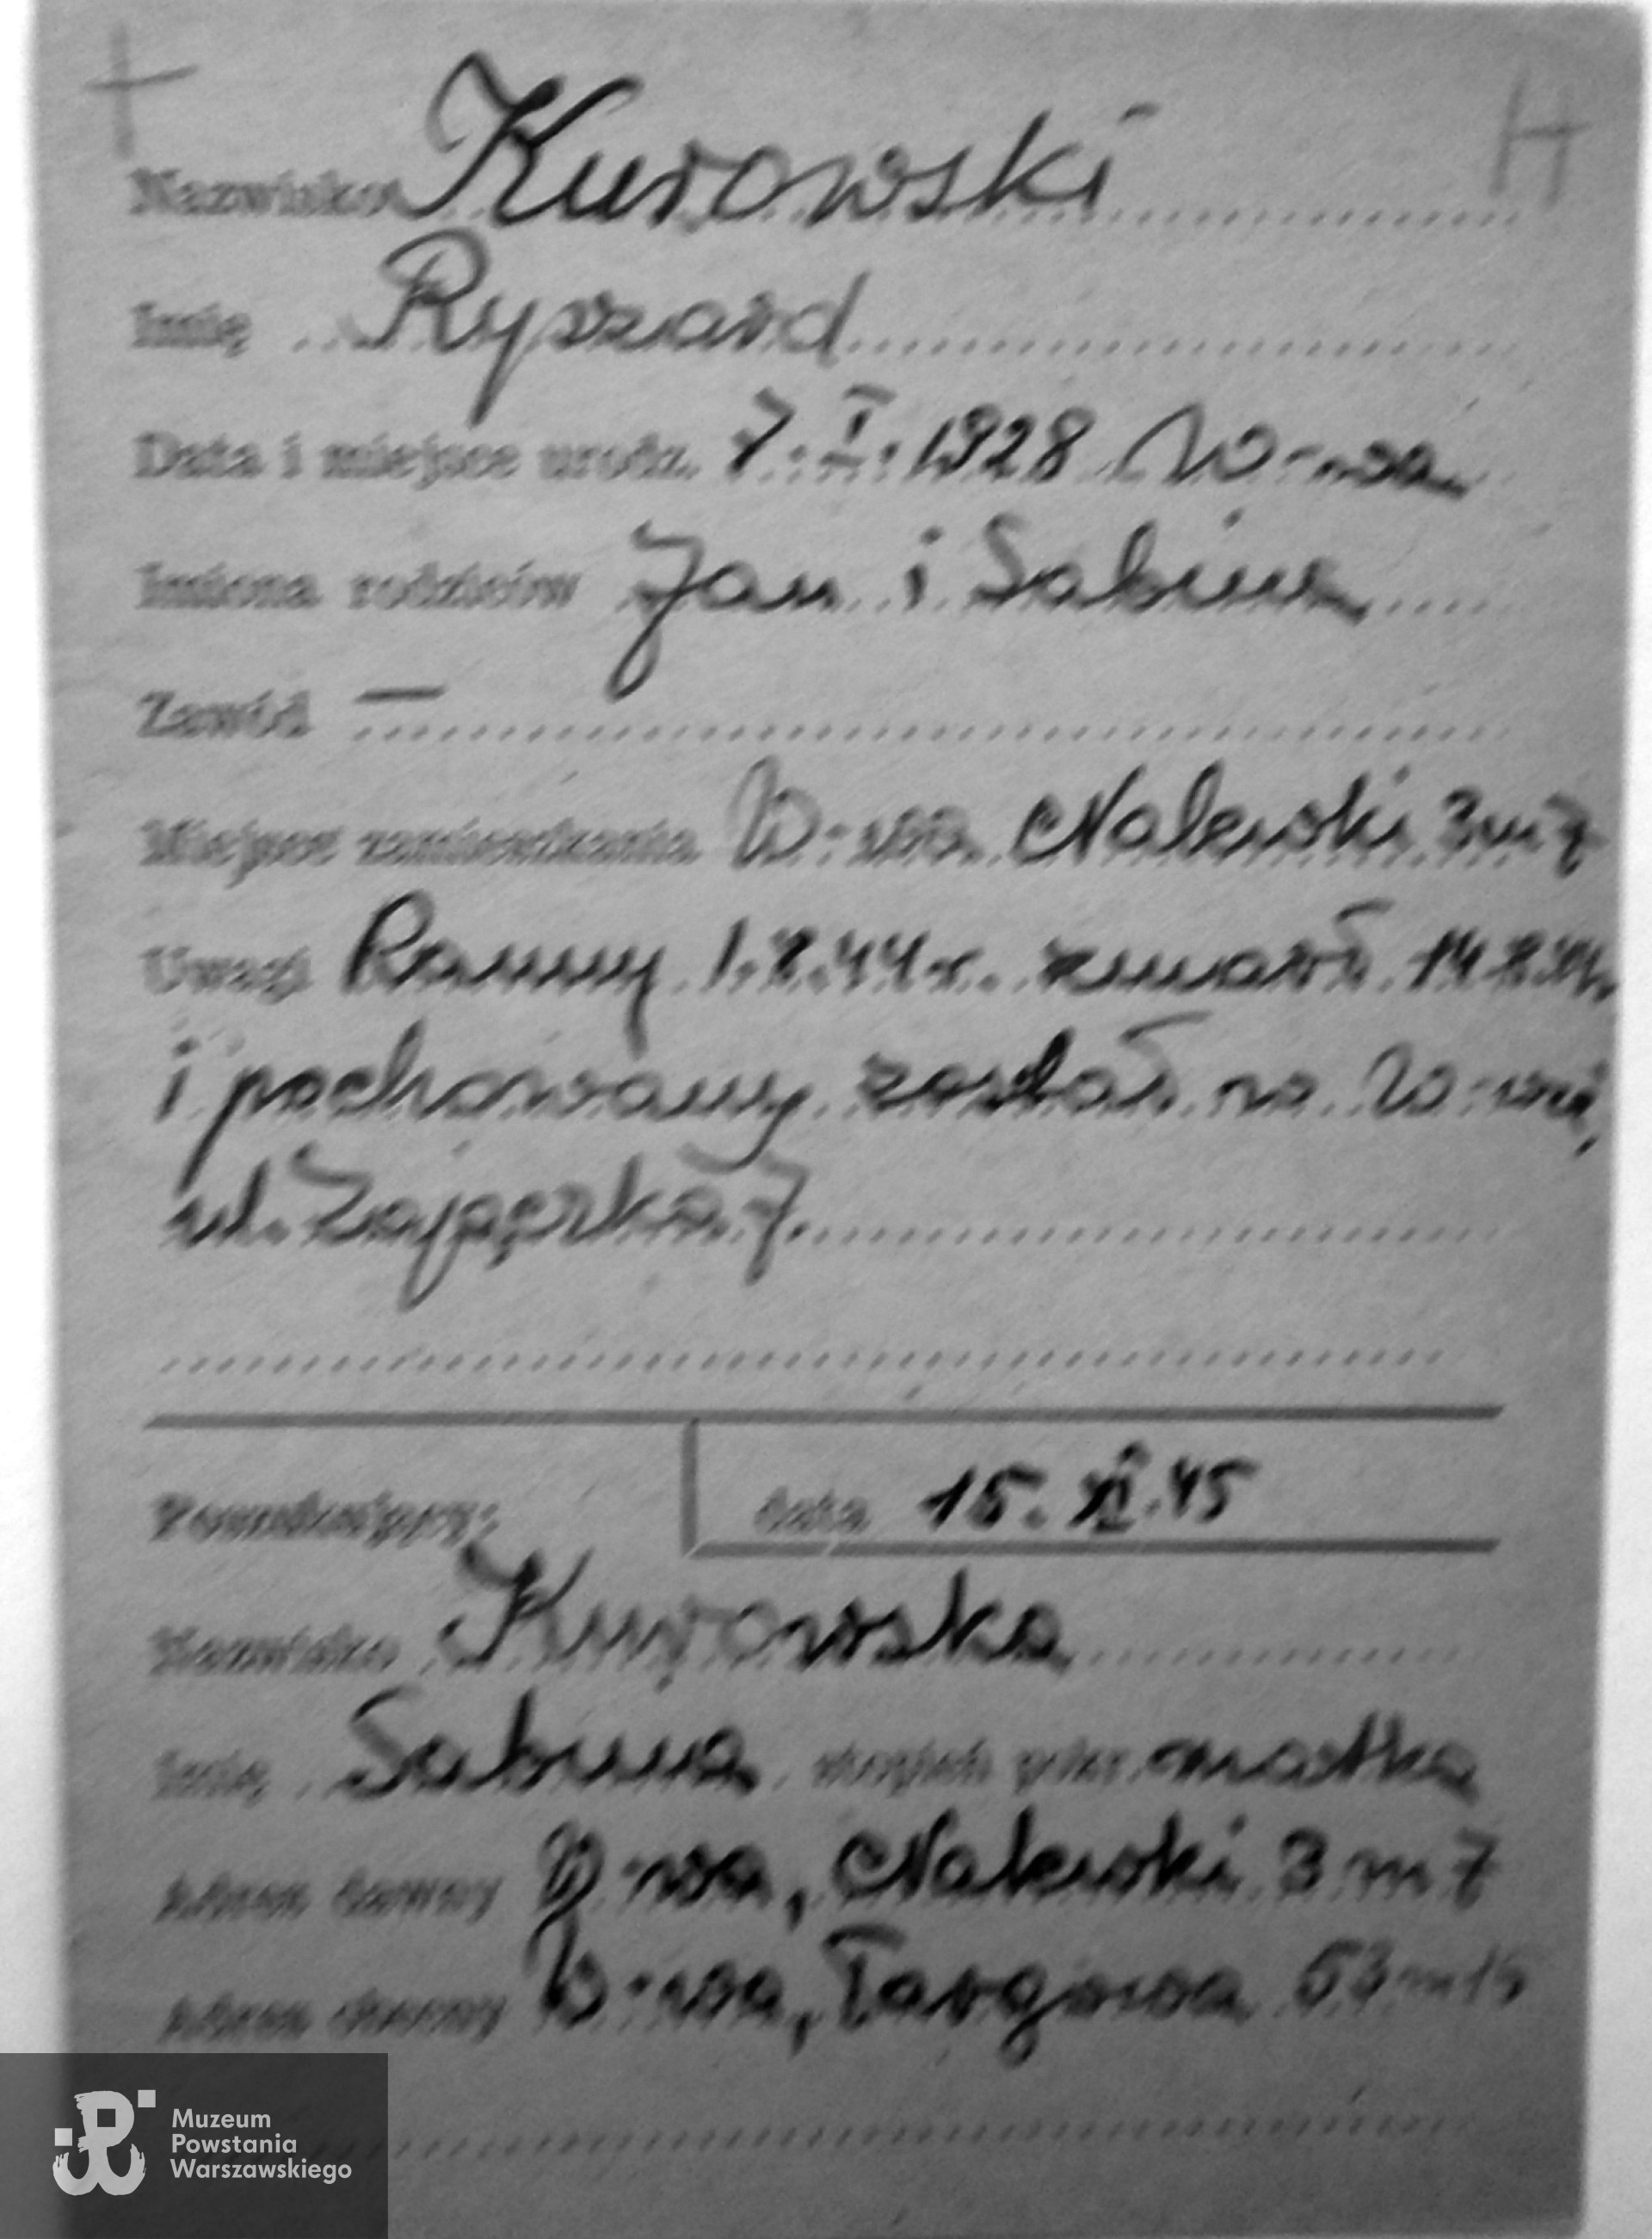 H
Nazwisko Kurowski
Imię Ryszard
Data i miejsce urodz. 7.I.1928 W-wa
Imiona rodziców Jan i Sabina
Zawód —
Miejsce zamieszkania W-wa Nalewski 3 m 7
Uwagi Ranny 1.8.44r. zmarł 14.8.44r.
i pochowany został na W-wie,
ul. Zajączka 7.
Poszukujący: data 15.XI.45
Nazwisko Kurowska
Imię Sabina stopień pokr. matka
Adres dawny W-wa, Nalewski 3 m 7
Adres obecny W-wa, Targowa 53 m 15
Muzeum
Powstania
Warszawskiego